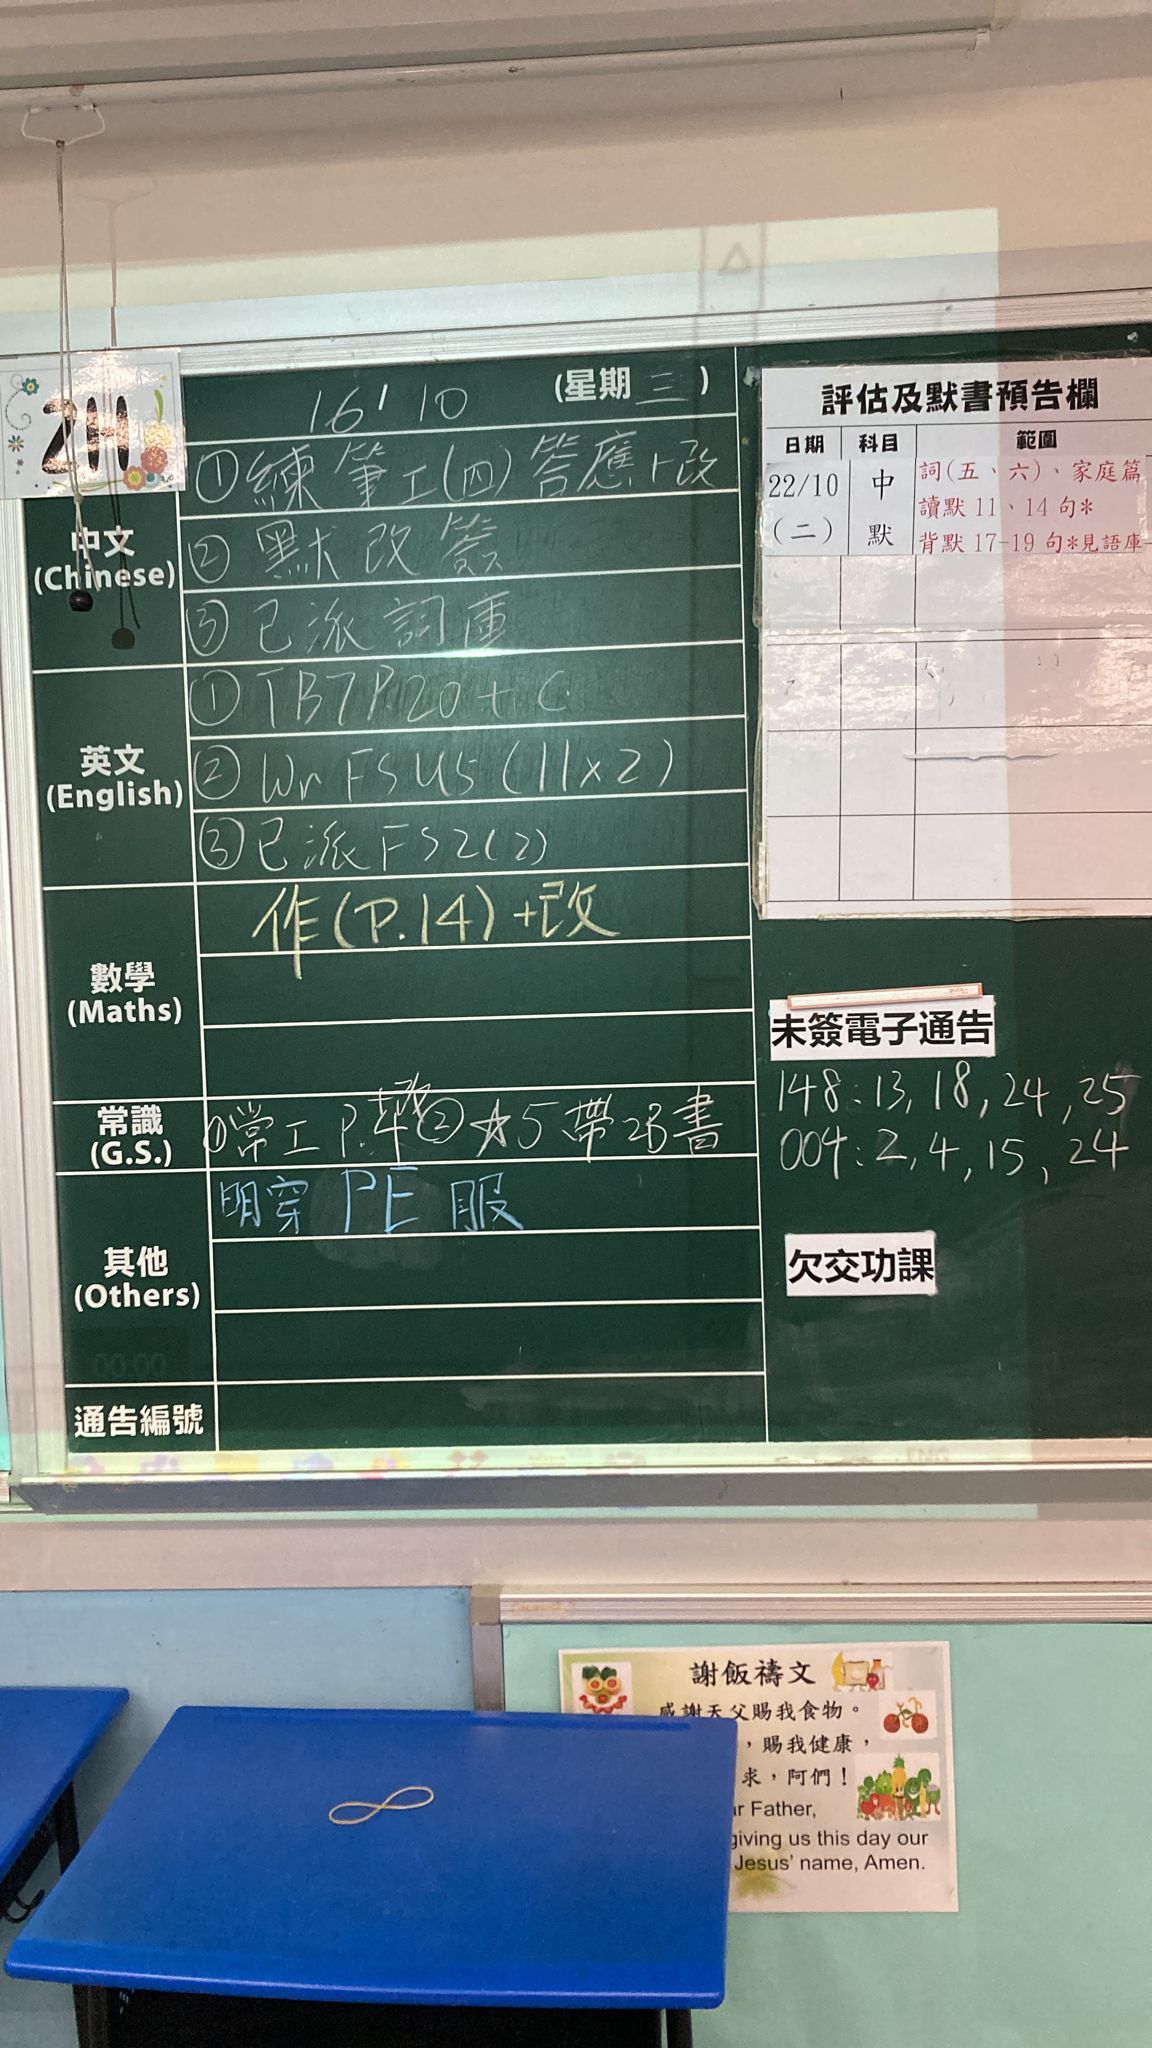 2H
16/10 (星期三)
中文
(Chinese)
①練筆工(四)答應+改
②默改簽
③已派詞庫
英文
(English)
①TB7P20+C
②Wr FS U5 (11x2)
③已派FS2(2)
數學
(Maths)
作(P.14)+改
常識
(G.S.)
①常工P.4 ②☆5帶2B書
其他
(Others)
明穿PE服
通告編號
評估及默書預告欄
日期 科目 範圍
22/10 中 詞(五、六)、家庭篇
讀默11、14句*
(二) 默 背默17-19句*見語庫
未簽電子通告
148:13,18,24,25
004:2,4,15,24
欠交功課
謝飯禱文
感謝天父賜我食物。
,賜我健康,
求,阿們!
Father,
giving us this day our
Jesus' name, Amen.